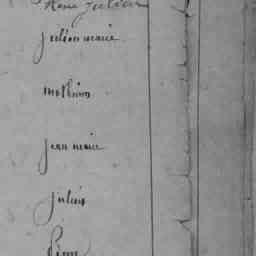 René Julien
julien marie
mathurin
jean marie
julien
Pierre